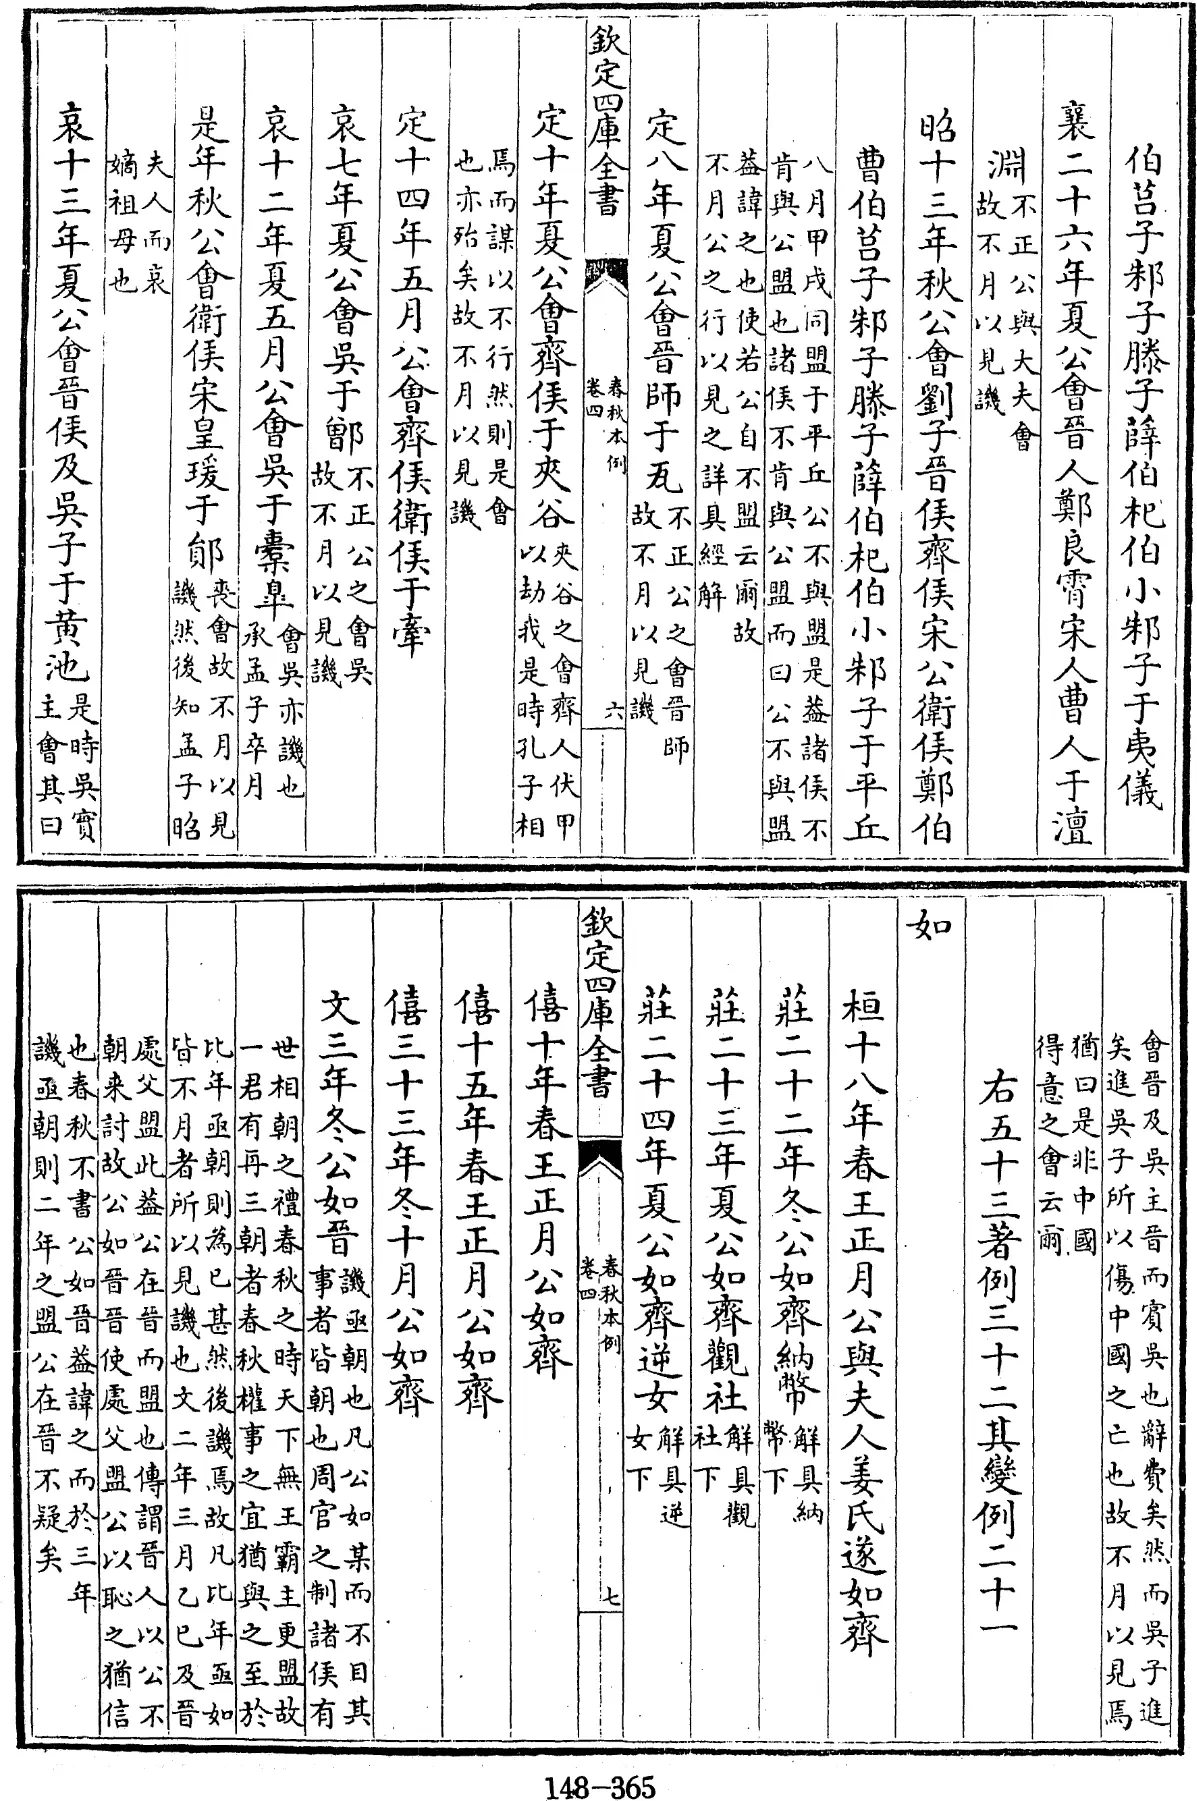 伯莒子邾子滕子薛伯杞伯小邾子于夷儀
襄二十六年夏公會晉人鄭良霄宋人曹人于澶
淵不正公與大夫會
故不月以見譏
昭十三年秋公會劉子晉侯齊侯宋公衛侯鄭伯
曹伯莒子邾子滕子薛伯杞伯小邾子于平丘
八月甲戌同盟于平丘公不與盟是葢諸侯不
肯與公盟也諸侯不肯與公盟而曰公不與盟
葢諱之也使若公自不盟云爾故
不月公之行以見之詳具經解
定八年夏公會晉師于瓦不正公之會晉師
故不月以見譏
欽定四庫全書
春秋本例
卷四
六
定十年夏公會齊侯于夾谷夾谷之會齊人伏甲
以劫我是時孔子相
焉而謀以不行然則是會
也亦殆矣故不月以見譏
定十四年五月公會齊侯衛侯于牽
哀七年夏公會吳于鄫不正公之會吳
故不月以見譏
哀十二年夏五月公會吳于橐臯會吳亦譏也
承孟子卒月
是年秋公會衛侯宋皇瑗于鄖喪會故不月以見
譏然後知孟子昭
夫人而哀
嫡祖母也
哀十三年夏公會晉侯及吳子于黄池是時吳實
主會其曰
會晉及吳主晉而賓吳也辭費矣然而吳子進
矣進吳子所以傷中國之亡也故不月以見焉
猶曰是非中國
得意之會云爾
右五十三著例三十二其變例二十一
如
桓十八年春王正月公與夫人姜氏遂如齊
莊二十二年冬公如齊納幣解具納
幣下
莊二十三年夏公如齊觀社解具觀
社下
莊二十四年夏公如齊逆女解具逆
女下
欽定四庫全書
春秋本例
卷四
七
僖十年春王正月公如齊
僖十五年春王正月公如齊
僖三十三年冬十月公如齊
文三年冬公如晉譏亟朝也凡公如某而不目其
事者皆朝也周官之制諸侯有
世相朝之禮春秋之時天下無王霸主更盟故
一君有再三朝者春秋權事之宜猶與之至於
比年亟朝則為已甚然後譏焉故凡比年亟如
皆不月者所以見譏也文二年三月乙巳及晉
處父盟此葢公在晉而盟也傳謂晉人以公不
朝来討故公如晉晉使處父盟公以恥之猶信
也春秋不書公如晉葢諱之而於三年
譏亟朝則二年之盟公在晉不疑矣
148-365